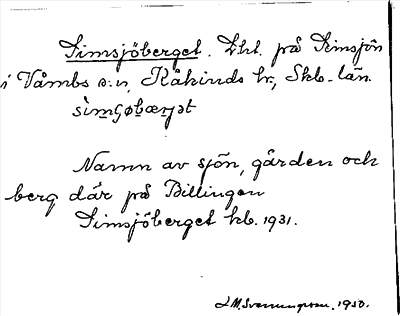 Simsjöberget. Lht. på Simsjön
i Våmbs s:n, Kåkinds hr, Skb. län.
sìmʃøbærjət
Namn av sjön, gården och
berg där på Billingen
Simsjöberget kb. 1931.
L.M. Svenungsson. 1930.